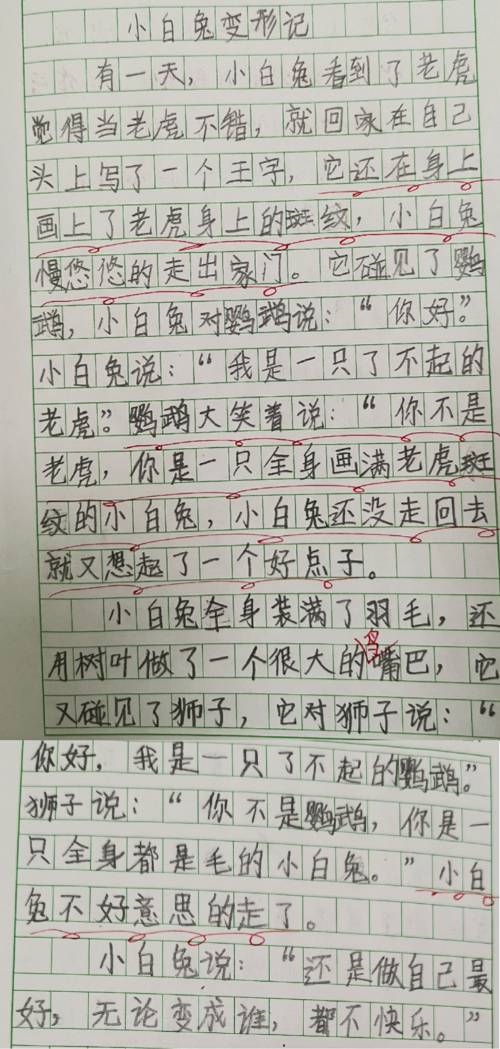 小白兔变形记
有一天，小白兔看到了老虎
觉得当老虎不错，就回家在自己
头上写了一个王字，它还在身上
画上了老虎身上的斑纹，小白兔
慢悠悠的走出家门。它碰见了鹦
鹉，小白兔对鹦鹉说：“你好。”
小白兔说：“我是一只了不起的
老虎。”鹦鹉大笑着说：“你不是
老虎，你是一只全身画满老虎斑
纹的小白兔，小白兔还没走回去
就又想起了一个好点子。
小白兔全身装满了羽毛，还
用树叶做了一个很大的鸟嘴巴，它
又碰见了狮子，它对狮子说：“
你好，我是一只了不起的鹦鹉。”
狮子说：“你不是鹦鹉，你是一
只全身都是毛的小白兔。”小白
兔不好意思的走了。
小白兔说：“还是做自己最
好，无论变成谁，都不快乐。”